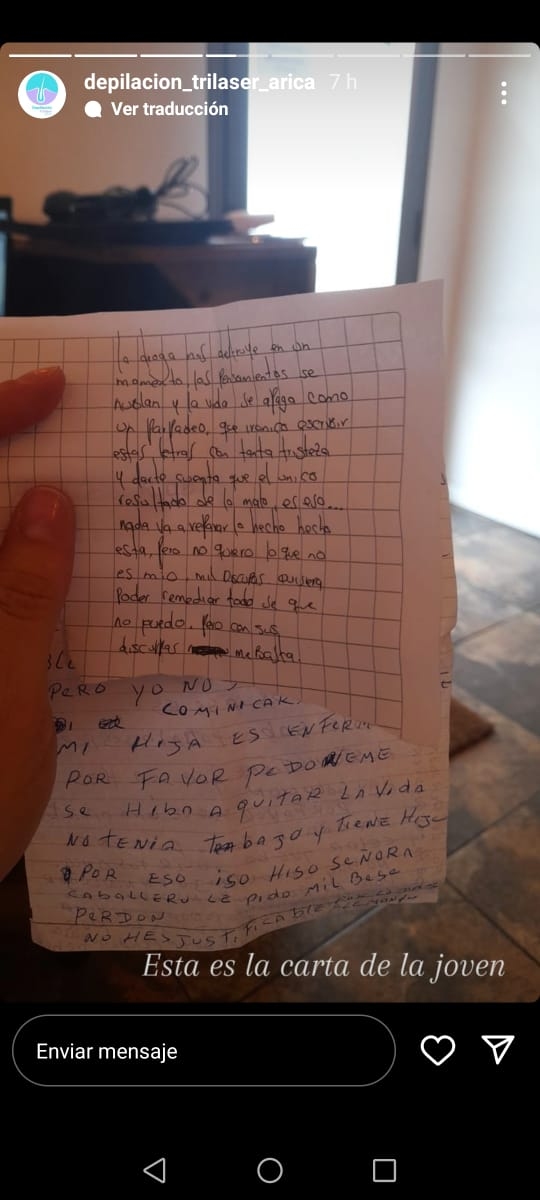 depilacion_trilaser_arica 7 h
Ver traducción
la droga nos destruye en un
momento, los pensamientos se
nublan y la vida se apaga como
un parpadeo, que ironico escribir
estas letras con tanta tristeza
y darte cuenta que el unico
resultado de lo malo, es eso...
nada va a reparar lo hecho hecho
esta, pero no quero lo que no
es mio. mil Disculpas quisiera
Poder remediar todo se que
no puedo. Pero con sus
disculpas me basta.
PERO YO NO
COMINICAR.
MI HIJA ES ENFERM
POR FAVOR PEDONEME
SE HIBA A QUITAR LA VIDA
NO TENIA TRABAGO Y TIENE HIJO
POR ESO ISO HISO SEÑORA
CABALLERO LE PIDO MIL BESE
PERDON
NO HES JUSTIFICABLE
Esta es la carta de la joven
Enviar mensaje